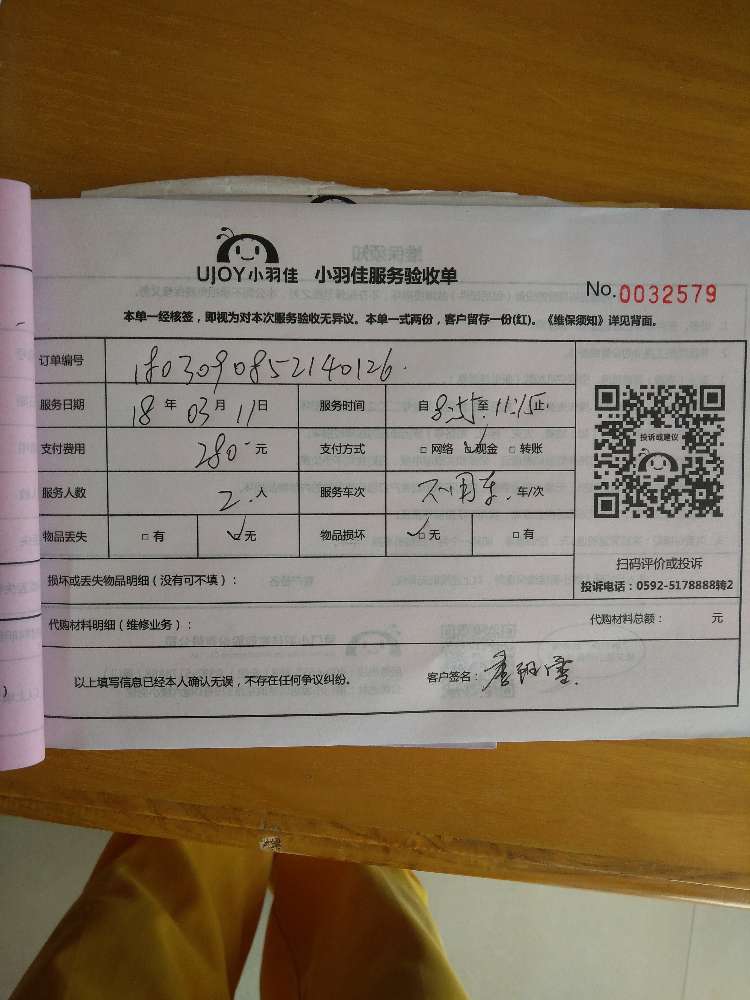 UJOY小羽佳 小羽佳服务验收单
No.0032579
本单一经核签，即视为对本次服务验收无异议。本单一式两份，客户留存一份(红)。《维保须知》详见背面。
订单编号 1803090852140126
服务日期 18 年 03 月 11 日 服务时间 自 8:55 至 11:15 止
支付费用 280 元 支付方式 □ 网络 ☑ 现金 □ 转账
服务人数 2 人 服务车次 不用车 车/次
物品丢失 □ 有 ☑ 无 物品损坏 ☑ 无 □ 有
投诉或建议
扫码评价或投诉
投诉电话：0592-5178888转2
损坏或丢失物品明细（没有可不填）：
代购材料明细（维修业务）： 代购材料总额： 元
以上填写信息已经本人确认无误，不存在任何争议纠纷。 客户签名：